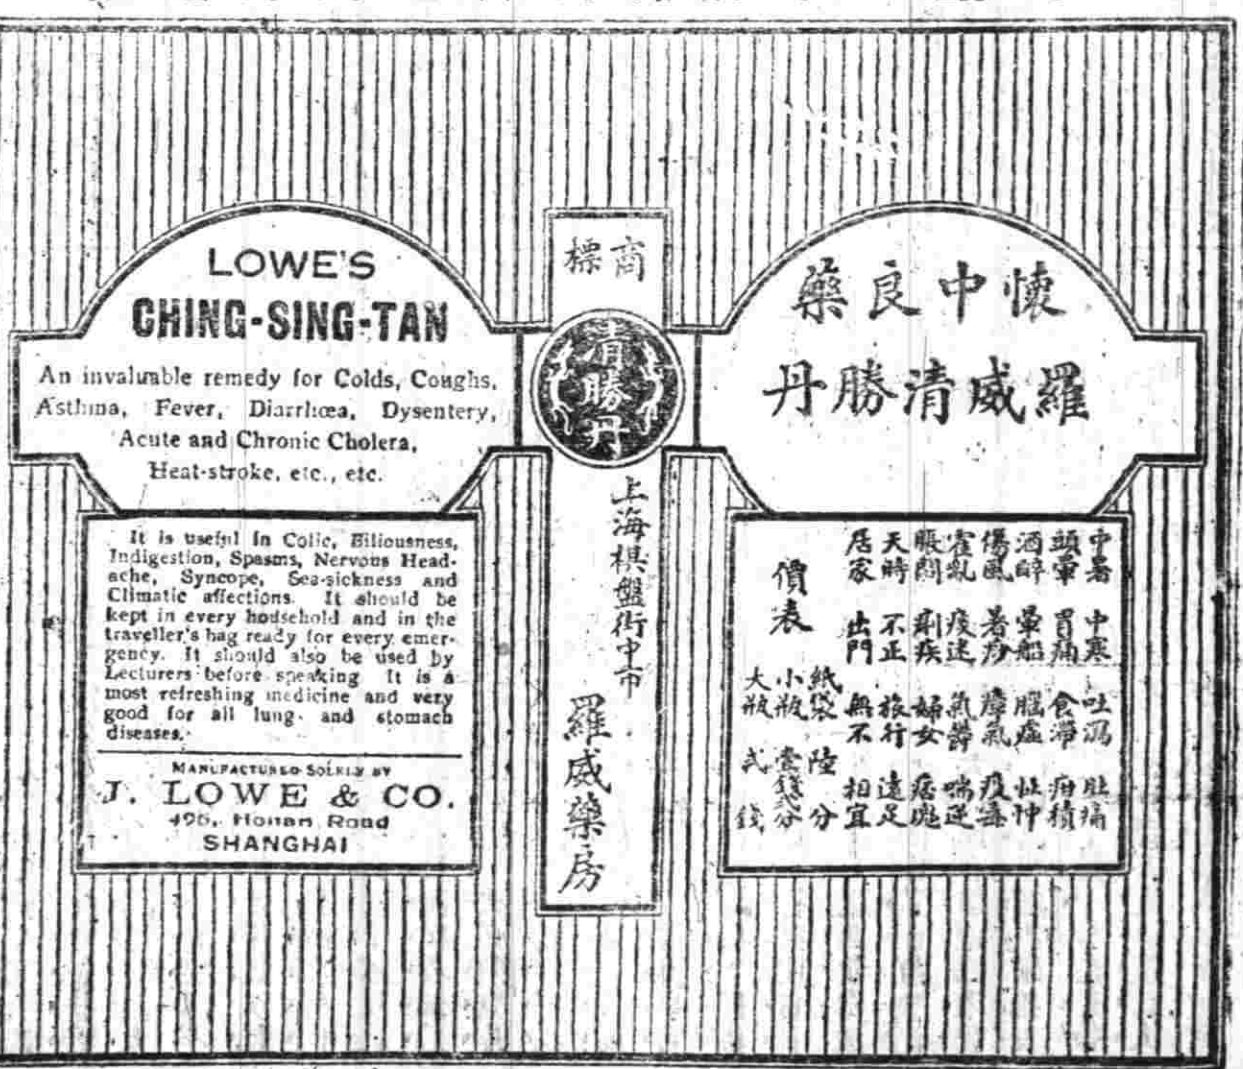 LOWE'S
CHING-SING-TAN
An invaluable remedy for Colds, Coughs,
Asthma, Fever, Diarrhœa, Dysentery,
Acute and Chronic Cholera,
Heat-stroke, etc., etc.
It is useful in Colic, Biliousness,
Indigestion, Spasms, Nervous Head-
ache, Syncope, Sea-sickness and
Climatic affections. It should be
kept in every household and in the
traveller's bag ready for every emer-
gency. It should also be used by
Lecturers before speaking It is a
most refreshing medicine and very
good for all lung and stomach
diseases.
MANUFACTURED SOLELY BY
J. LOWE & CO.
495, Honan Road
SHANGHAI
商標
清勝丹
上海棋盤街中市
羅威藥房
懷中良藥
羅威清勝丹
中暑 中寒 吐瀉 肚痛
頭暈 胃痛 食滯 疳積
酒醉 暈船 腦虛 怔忡
傷風 暑痧 瘴氣 疫毒
霍亂 痰迷 氣鬱 喘逆
脹悶 痢疾 婦女 痞塊
天時 不正 旅行 遠足
居家 出門 無不 相宜
價表
紙袋 陸分
小瓶 壹錢貳分
大瓶 弍錢